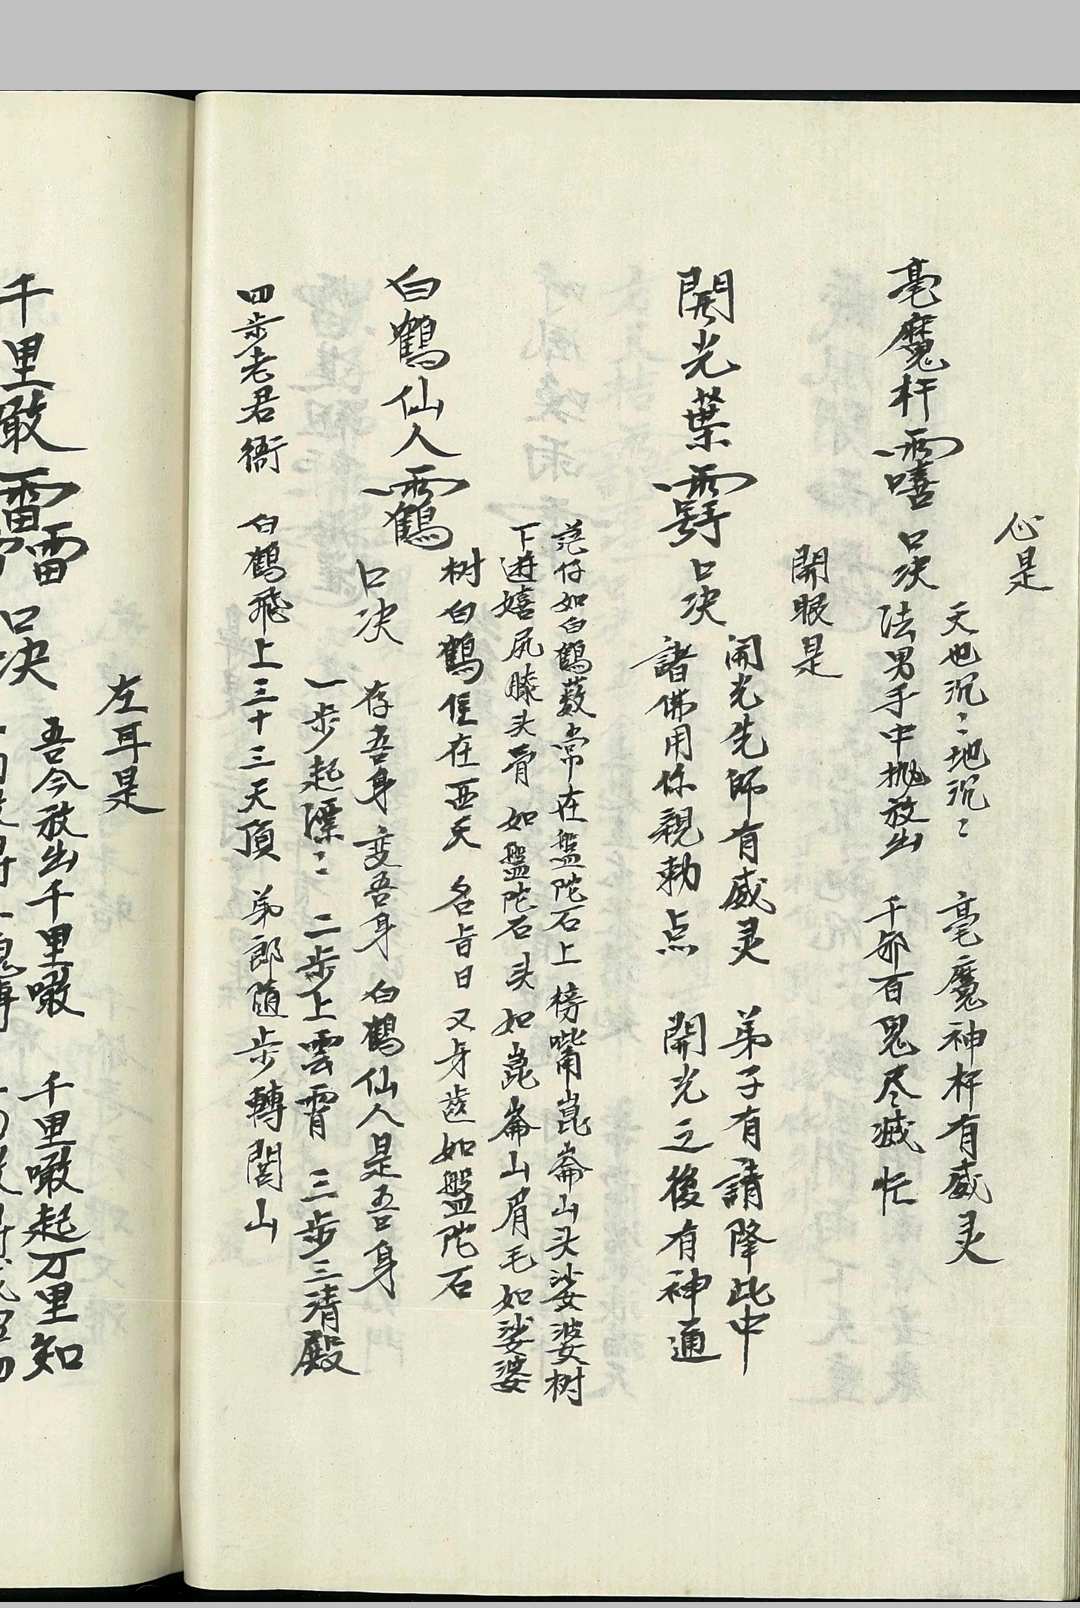 心是
毫魔杆 口决
天也沉:地沉: 毫魔神杆有威灵
法男手中抛放出 千邪百鬼尽滅忙
開眼是
開光葉 口决
開光先師有威灵 弟子有請降此中
諸佛用你親勅点 開光之後有神通
仔如白鶴 常在盤陀石上 嘴崑崙山头娑婆树
下遊嬉尻膝头骨 如盤陀石头 如崑崙山眉毛如娑婆
树 白鶴隹在西天 名 曰 又身 如盤陀石
白鶴仙人 口决
存吾身变吾身 白鶴仙人是吾身
一步起漂: 二步上雲霄 三步三清殿
四步老君衙 白鶴飛上三十三天頂 弟郎随步轉閭山
左耳是
千里 口决
吾今放出千里噉 千里噉起万里知